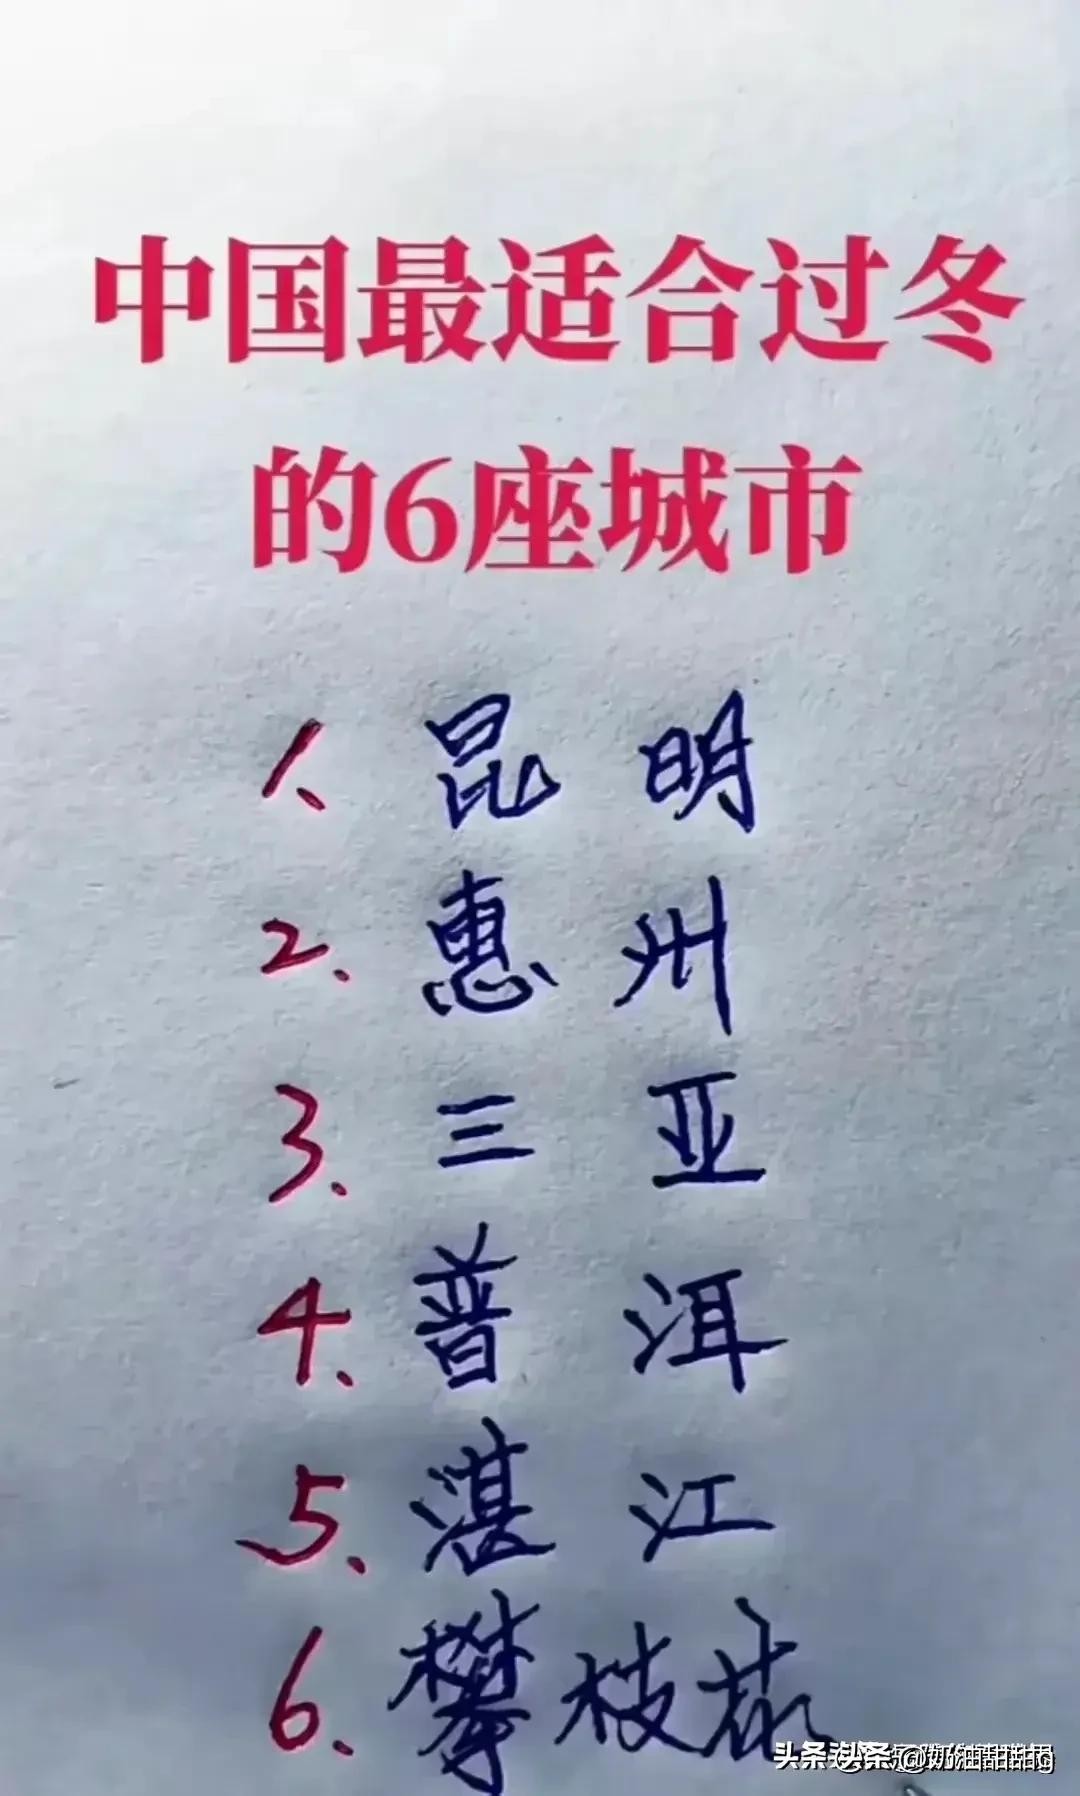 中国最适合过冬
的6座城市
1. 昆明
2. 惠州
3. 三亚
4. 普洱
5. 湛江
6. 攀枝花
头条 @奶油甜甜